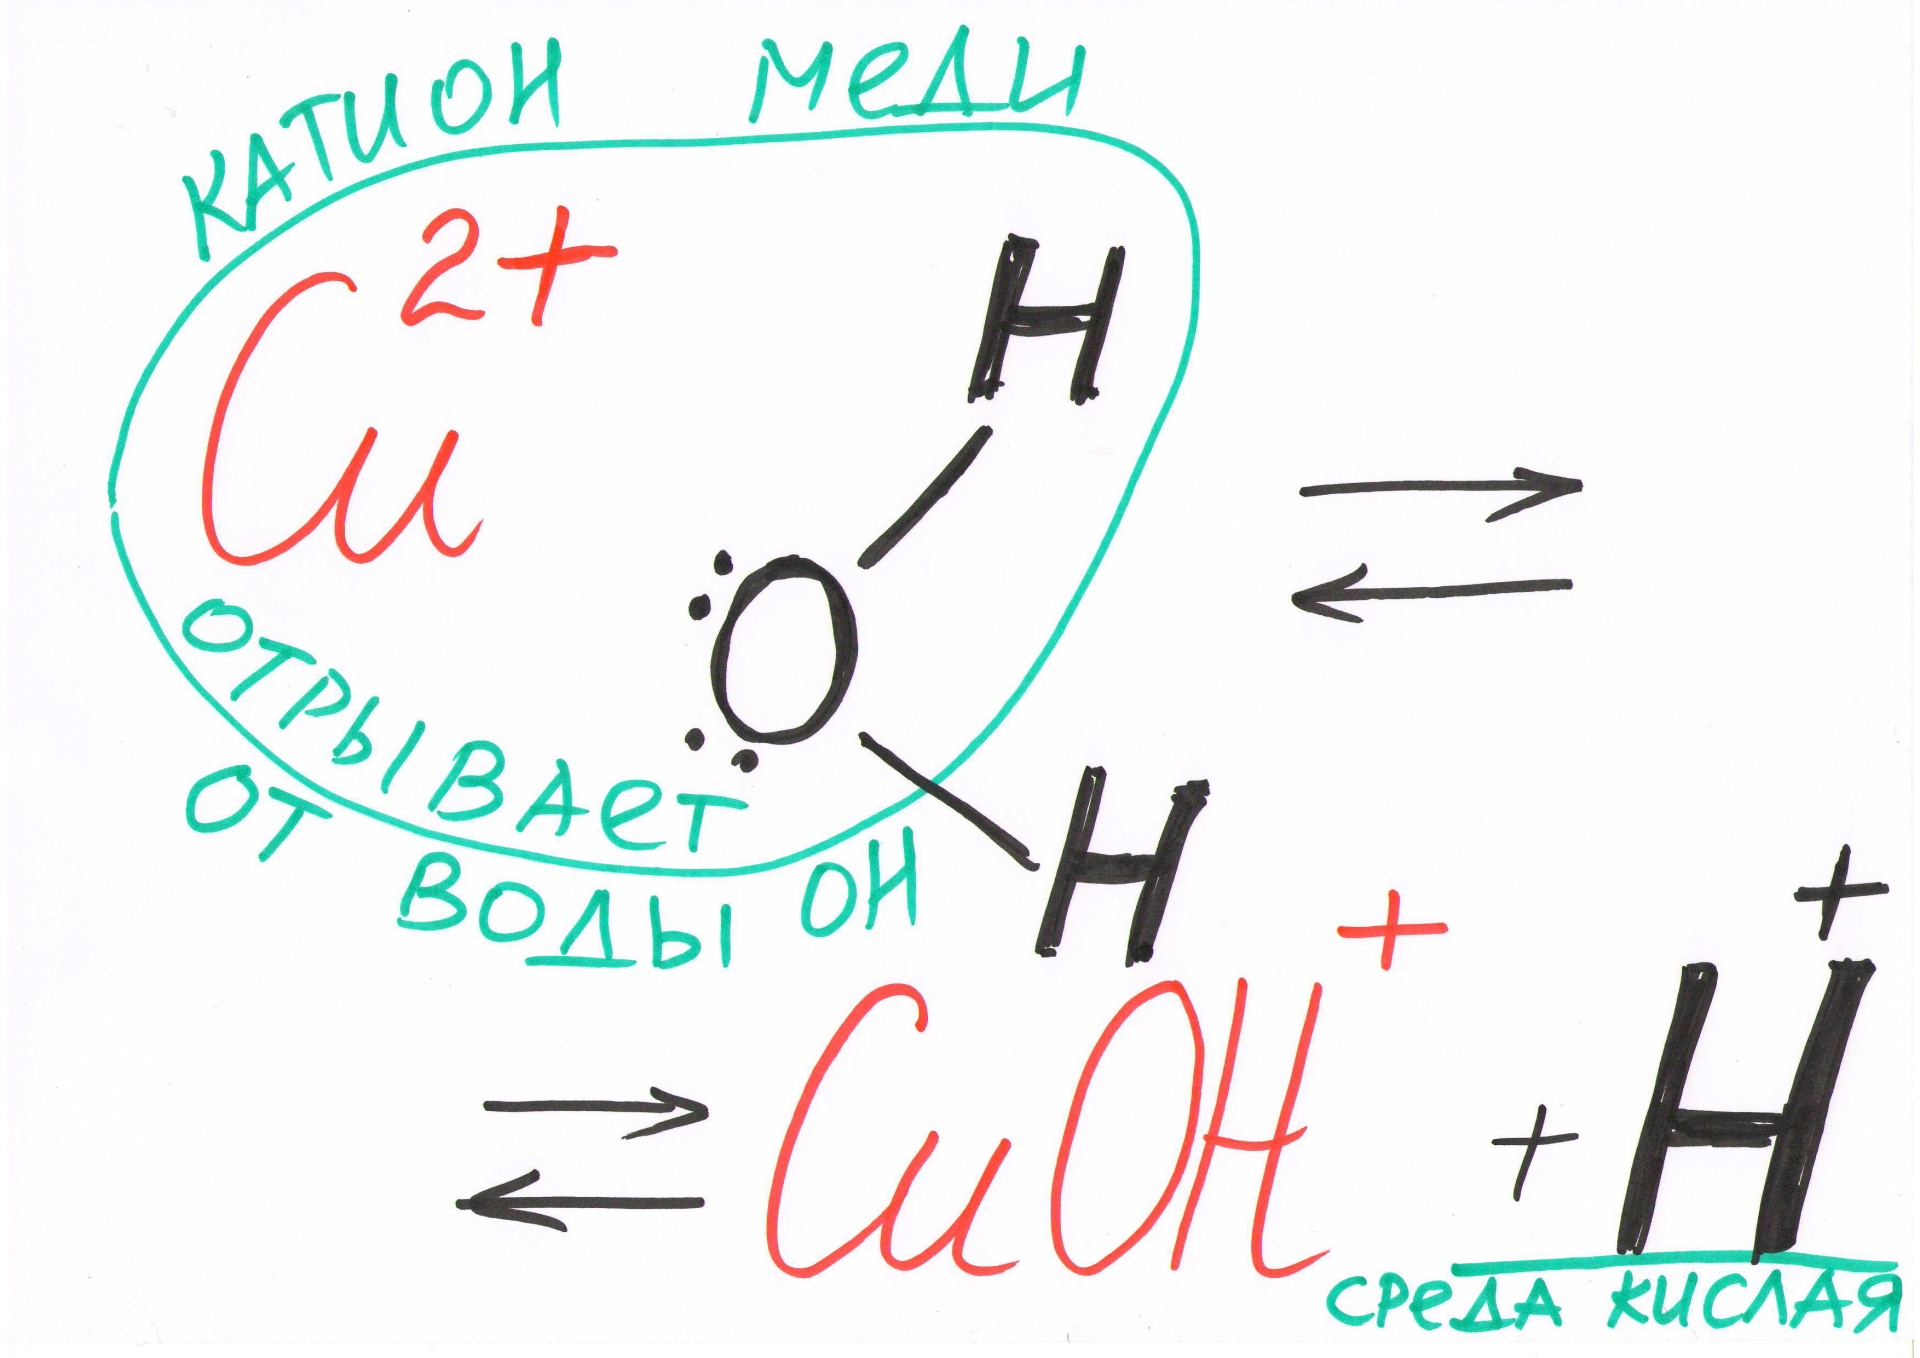 КАТИОН МЕДИ
Cu²⁺
H
O
H
⇌
ОТРЫВАЕТ
ОТ ВОДЫ ОН
⇌ CuOH⁺ + H⁺
СРЕДА КИСЛАЯ